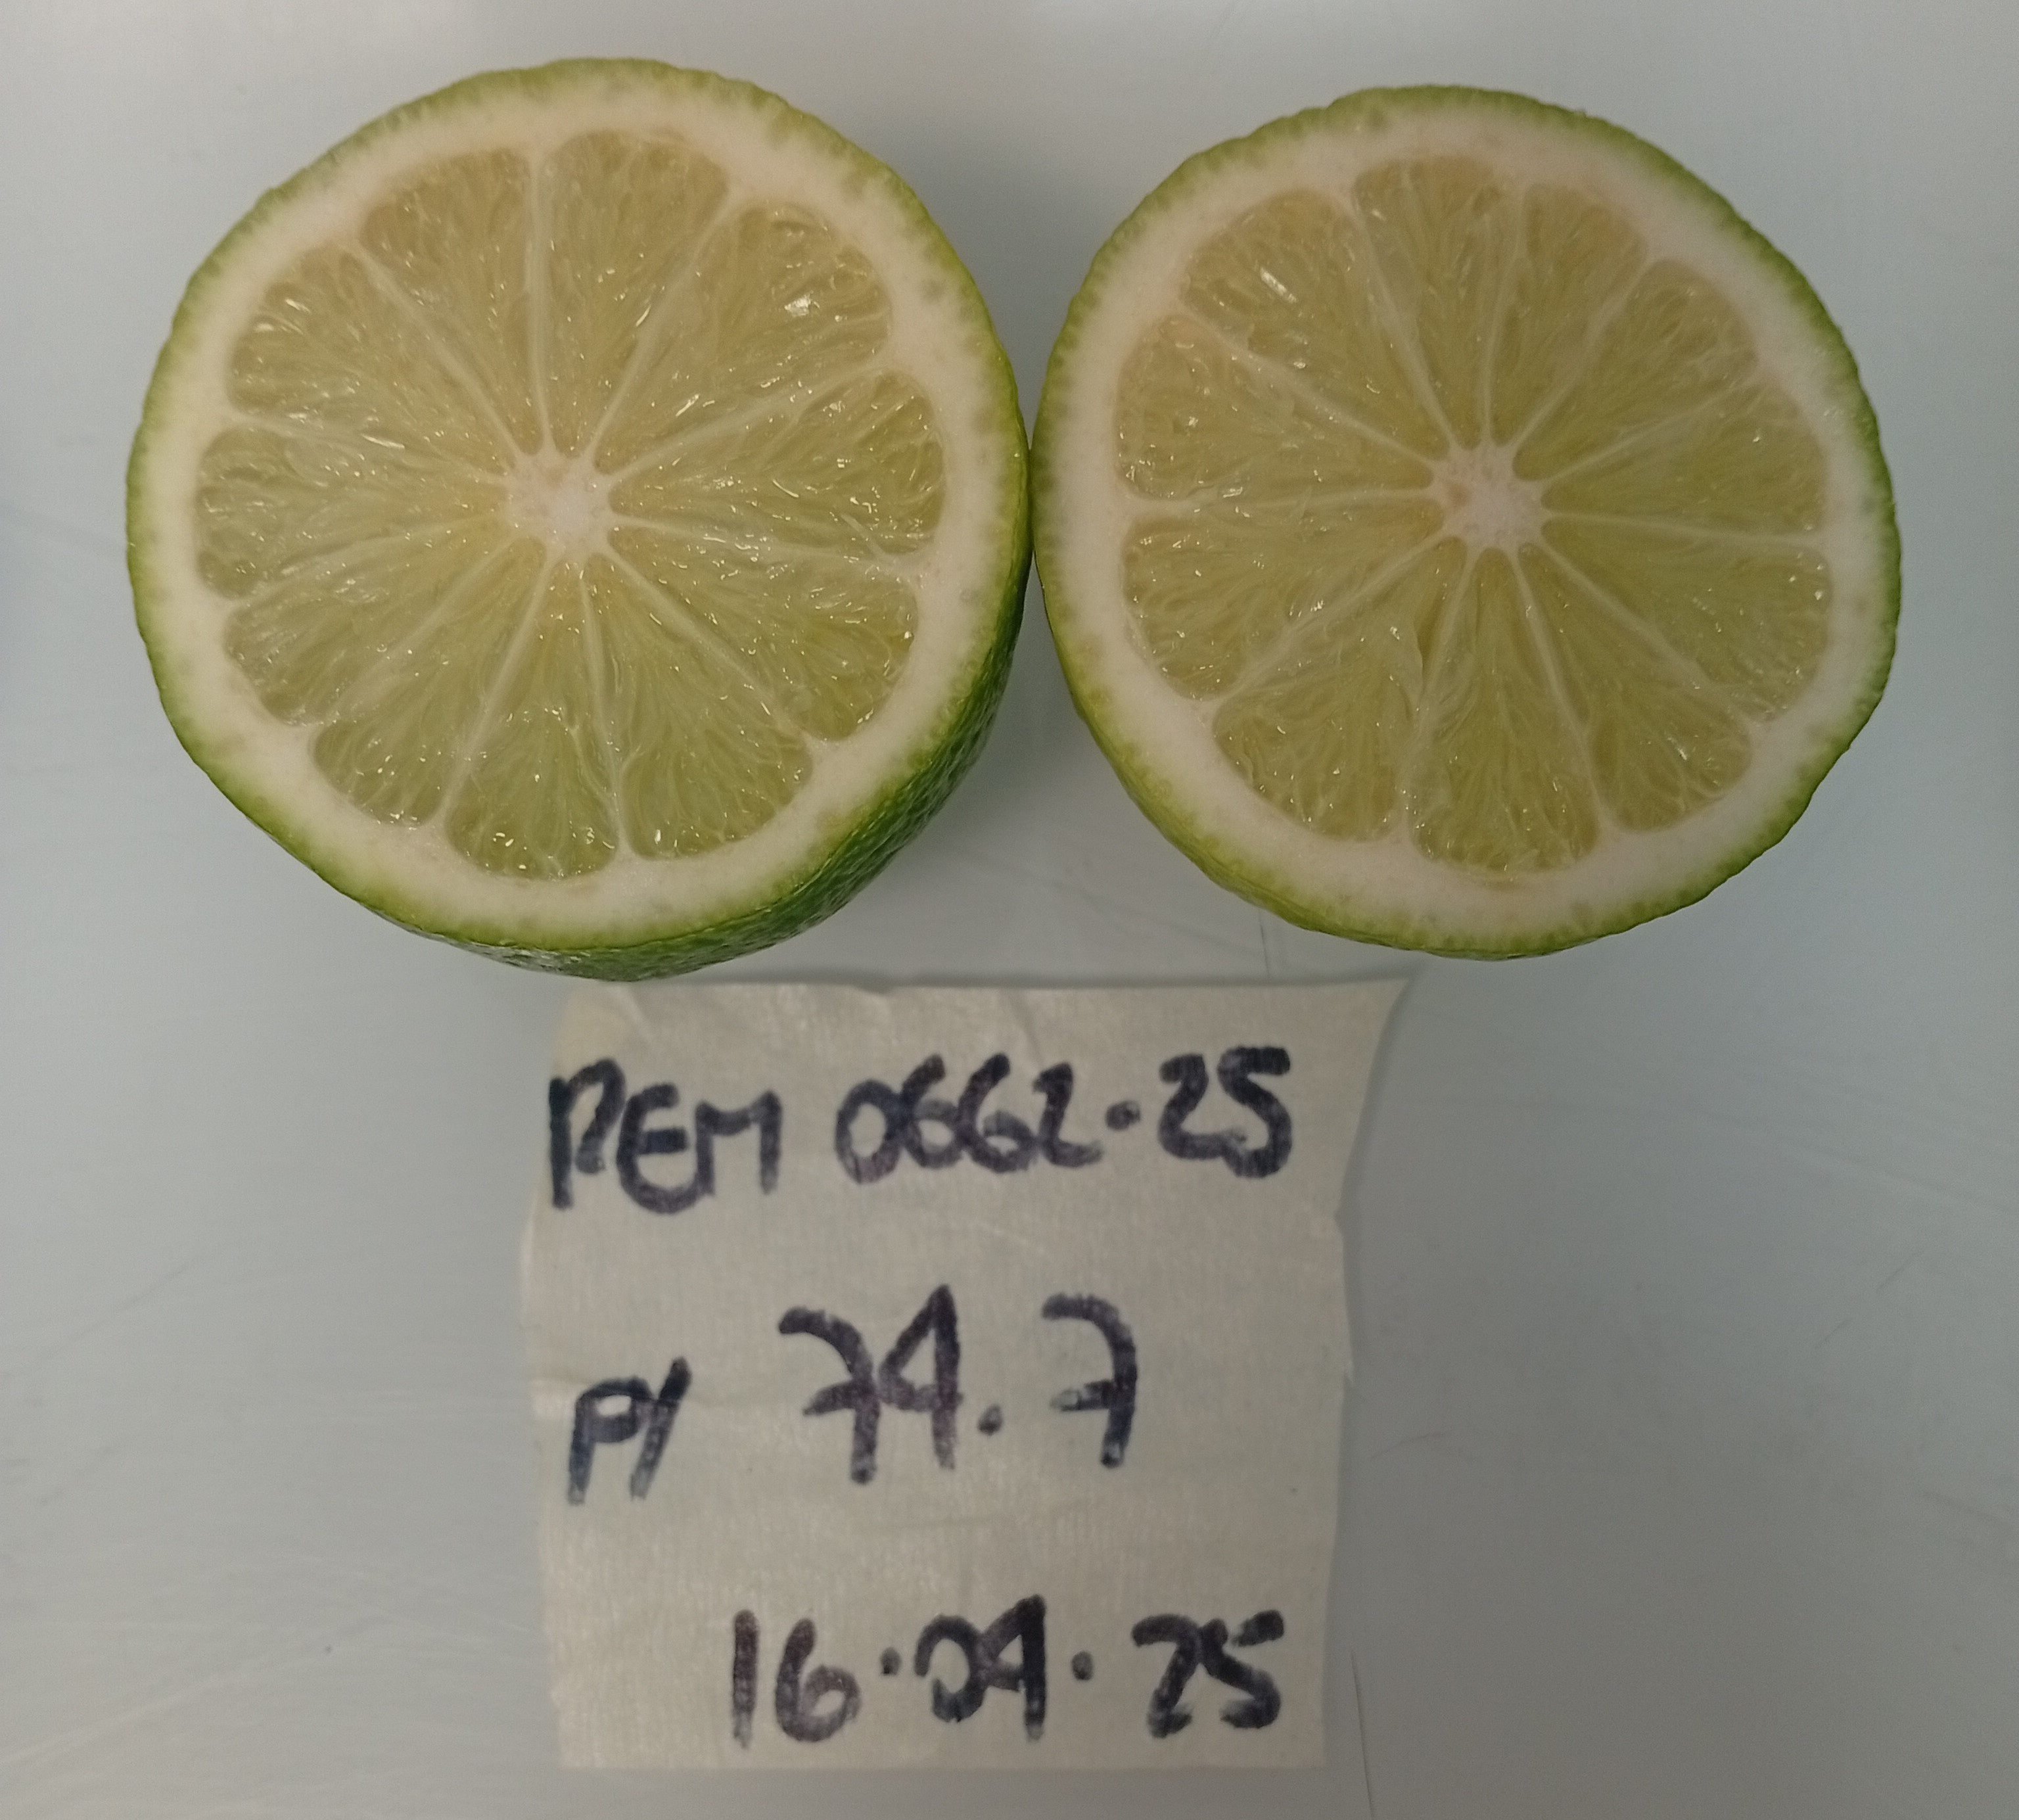 REM 0662-25
P/ 74.7
16.04.25